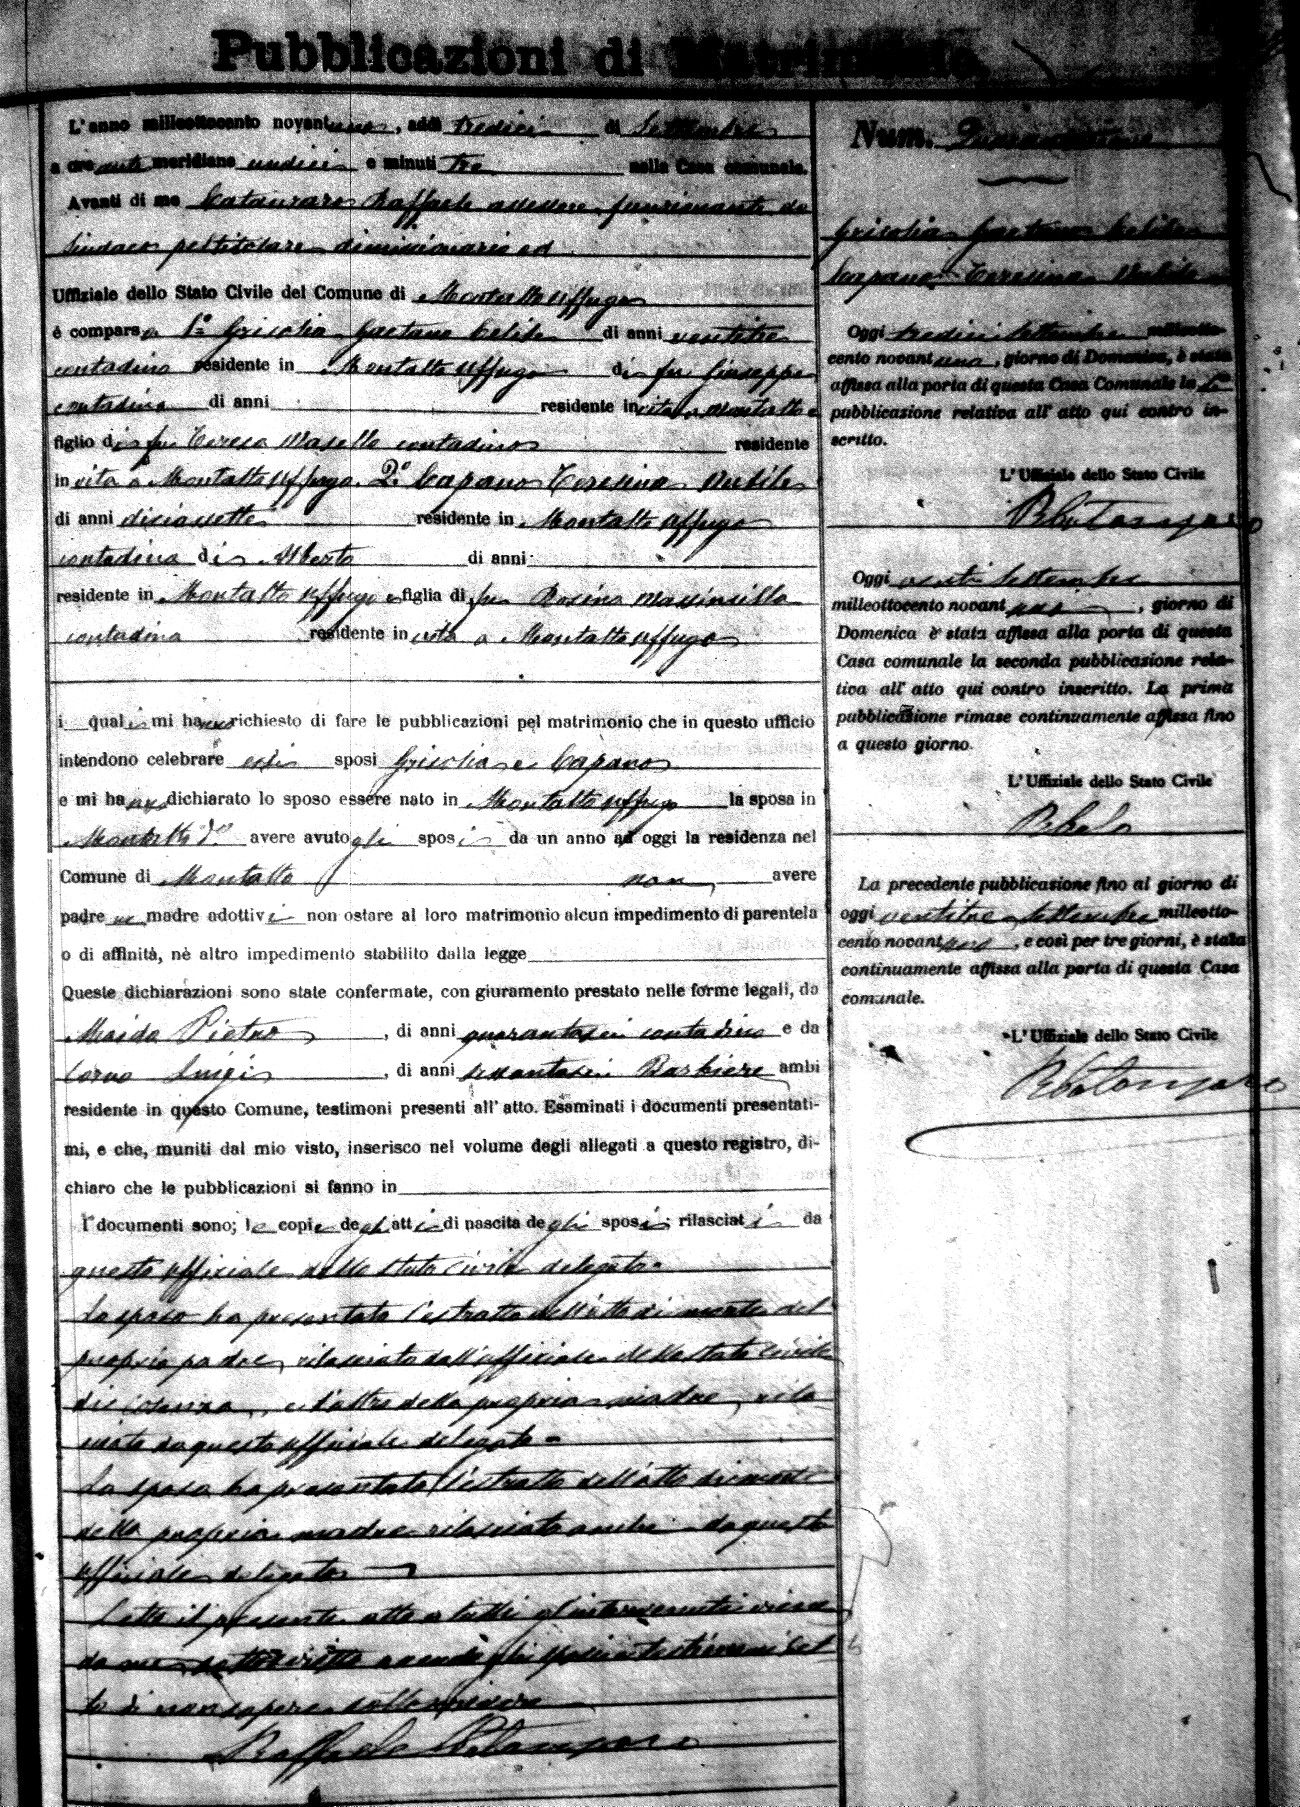 Pubblicazioni di Matrimonio.
L'anno milleottocento novantuno, addì tredici di Settembre
a ore ante meridiane undici e minuti tre nella Casa comunale.
Avanti di me Raffaele assessore funzionante da
Sindaco pel titolare dimissionario ed
Uffiziale dello Stato Civile del Comune di Montalto Uffugo
è comparso 1º Grisolia Gaetano Celibe di anni ventitre
contadino residente in Montalto Uffugo di fu Giuseppe
contadino di anni residente in vita a Montalto
figlio di fu Teresa Masello contadina residente
in vita a Montalto Uffugo. 2º Capano Teresina Nubile
di anni diciassette residente in Montalto Uffugo
contadina di Alberto di anni
residente in Montalto Uffugo e figlia di fu Rosina
contadina residente in vita a Montalto Uffugo
i quali mi hanno richiesto di fare le pubblicazioni pel matrimonio che in questo ufficio
intendono celebrare essi sposi Grisolia e Capano
e mi hanno dichiarato lo sposo essere nato in Montalto Uffugo la sposa in
Montalto avere avuto gli sposi da un anno ad oggi la residenza nel
Comune di Montalto non avere
padre ne madre adottivi non ostare al loro matrimonio alcun impedimento di parentela
o di affinità, nè altro impedimento stabilito dalla legge
Queste dichiarazioni sono state confermate, con giuramento prestato nelle forme legali, da
Maida Pietro, di anni quarantasei contadino e da
Corno Luigi, di anni sessantasei Barbiere ambi
residente in questo Comune, testimoni presenti all'atto. Esaminati i documenti presentati-
mi, e che, muniti dal mio visto, inserisco nel volume degli allegati a questo registro, di-
chiaro che le pubblicazioni si fanno in
I documenti sono; le copie degli atti di nascita degli sposi rilasciati da
questo ufficiale dello stato civile delegato.
Lo sposo ha presentato l'estratto dell'atto di morte del
proprio padre, rilasciato dall'ufficiale dello stato civile
di Cosenza, e l'altro della propria madre, rila
sciato da questo ufficiale delegato.
La sposa ha presentato l'estratto dell'atto di morte
della propria madre rilasciato anche da questo
ufficiale delegato
Letto il presente atto a tutti gl'intervenuti viene
da me sottoscritto avendo gli sposi e testimoni det
to di non sapere sottoscrivere
Raffaele
Num.
Grisolia Gaetano Celibe
Capano Teresina Nubile
Oggi tredici Settembre milleotto-
cento novantuno, giorno di Domenica, è stata
affissa alla porta di questa Casa Comunale la
pubblicazione relativa all'atto qui contro in-
scritto.
L'Uffiziale dello Stato Civile
Oggi venti Settembre
milleottocento novantuno, giorno di
Domenica è stata affissa alla porta di questa
Casa comunale la seconda pubblicazione rela-
tiva all'atto qui contro inscritto. La prima
pubblicazione rimase continuamente affissa fino
a questo giorno.
L'Uffiziale dello Stato Civile
La precedente pubblicazione fino al giorno di
oggi ventitre Settembre milleotto-
cento novantuno, e così per tre giorni, è stata
continuamente affissa alla porta di questa Casa
comunale.
L'Uffiziale dello Stato Civile